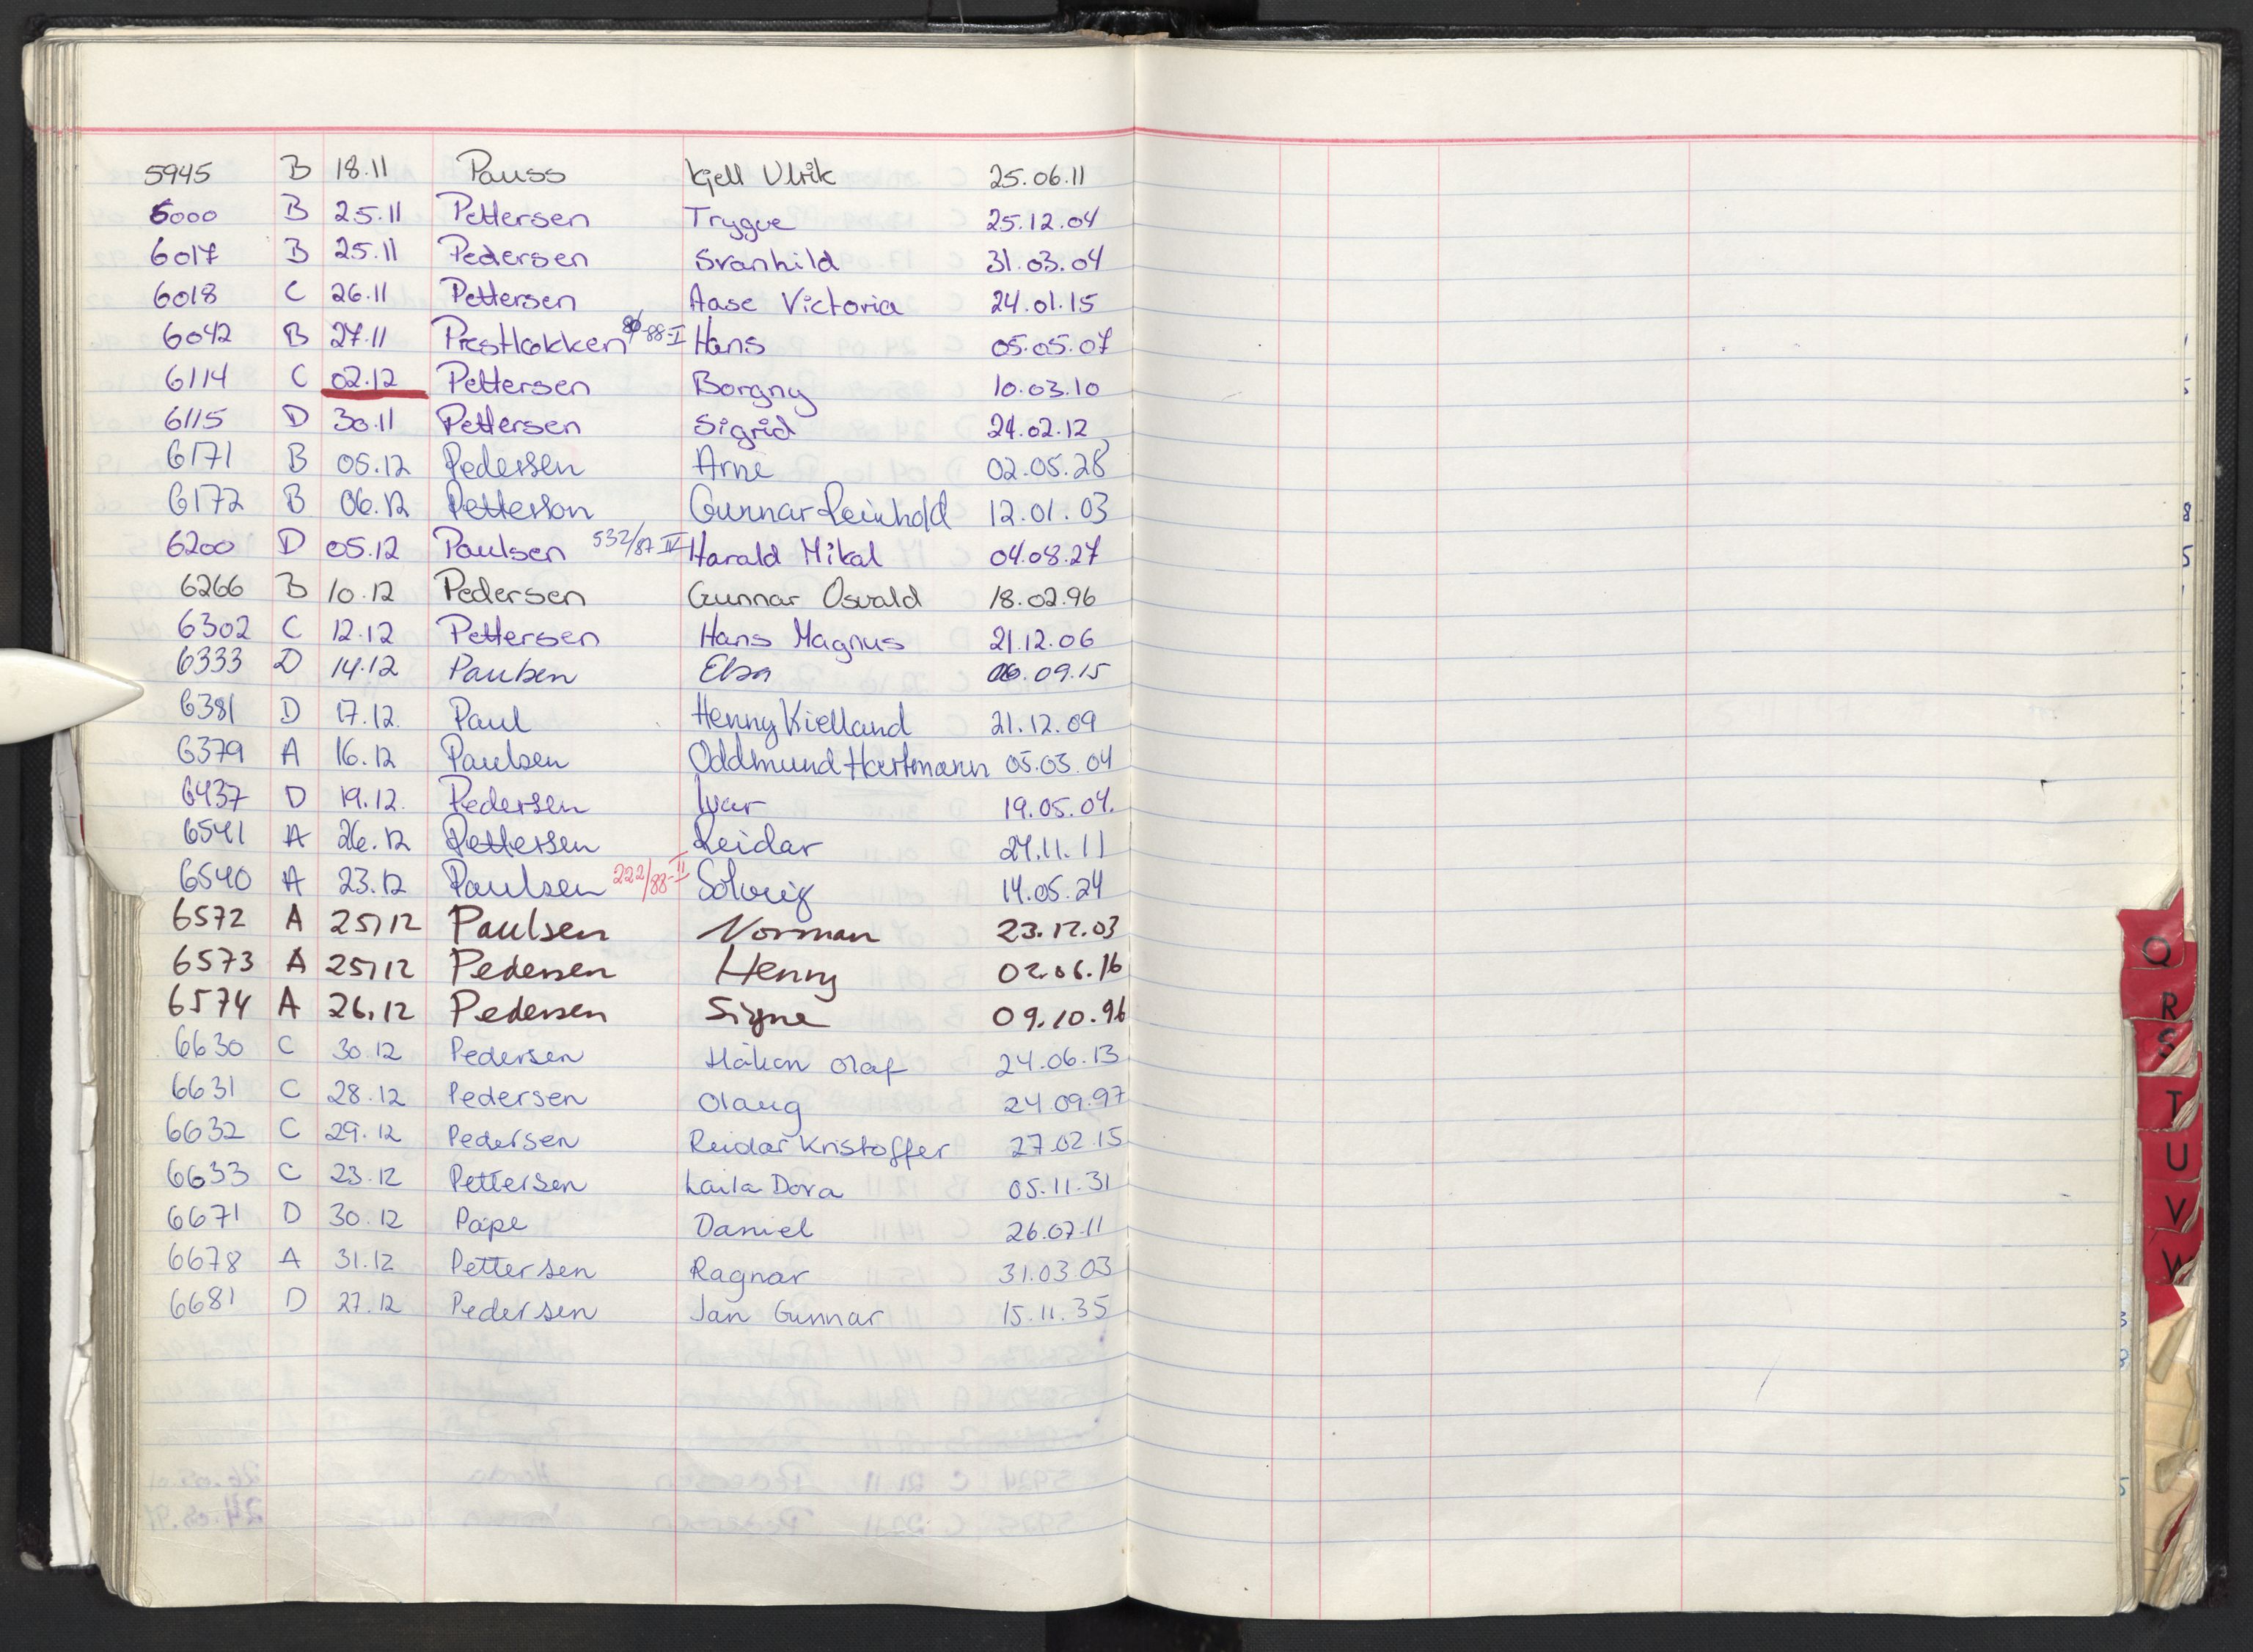 5945 B 18.11 Pauss Kjell Ulrik 25.06.11
6000 B 25.11 Pettersen Trygve 25.12.04
6017 B 25.11 Pedersen Svanhild 31.03.04
6018 C 26.11 Pettersen Aase Victoria 24.01.15
6042 B 27.11 Prestløkken 88-I Hans 05.05.07
6114 C 02.12 Pettersen Borgny 10.03.10
6115 D 30.11 Pettersen Sigrid 24.02.12
6171 B 05.12 Pedersen Arne 02.05.28
6172 B 06.12 Petterson Gunnar Reinhold 12.01.03
6200 D 05.12 Paulsen 532/87 IV Harald Mikal 04.08.27
6266 B 10.12 Pedersen Gunnar Osvald 18.02.96
6302 C 12.12 Pettersen Hans Magnus 21.12.06
6333 D 14.12 Paulsen Elsa 06.09.15
6381 D 17.12. Paul Henny Kielland 21.12.09
6379 A 16.12 Paulsen Oddmund Hartmann 05.03.04
6437 D 19.12. Pedersen Ivar 19.05.04.
6541 A 26.12 Pettersen Reidar 24.11.11
6540 A 23.12 Paulsen 222/88-II Solveig 14.05.24
6572 A 25.12 Paulsen Norman 23.12.03
6573 A 25.12 Pedersen Henny 02.06.16
6574 A 26.12 Pedersen Signe 09.10.96
6630 C 30.12 Pedersen Håkon Olaf 24.06.13
6631 C 28.12 Pedersen Olaug 24.09.97
6632 C 29.12 Pedersen Reidar Kristoffer 27.02.15
6633 C 23.12 Pettersen Laila Dora 05.11.31
6671 D 30.12 Pape Daniel 26.07.11
6678 A 31.12 Pettersen Ragnar 31.03.03
6681 D 27.12 Pedersen Jan Gunnar 15.11.35
Q
R
S
T
U
V
W